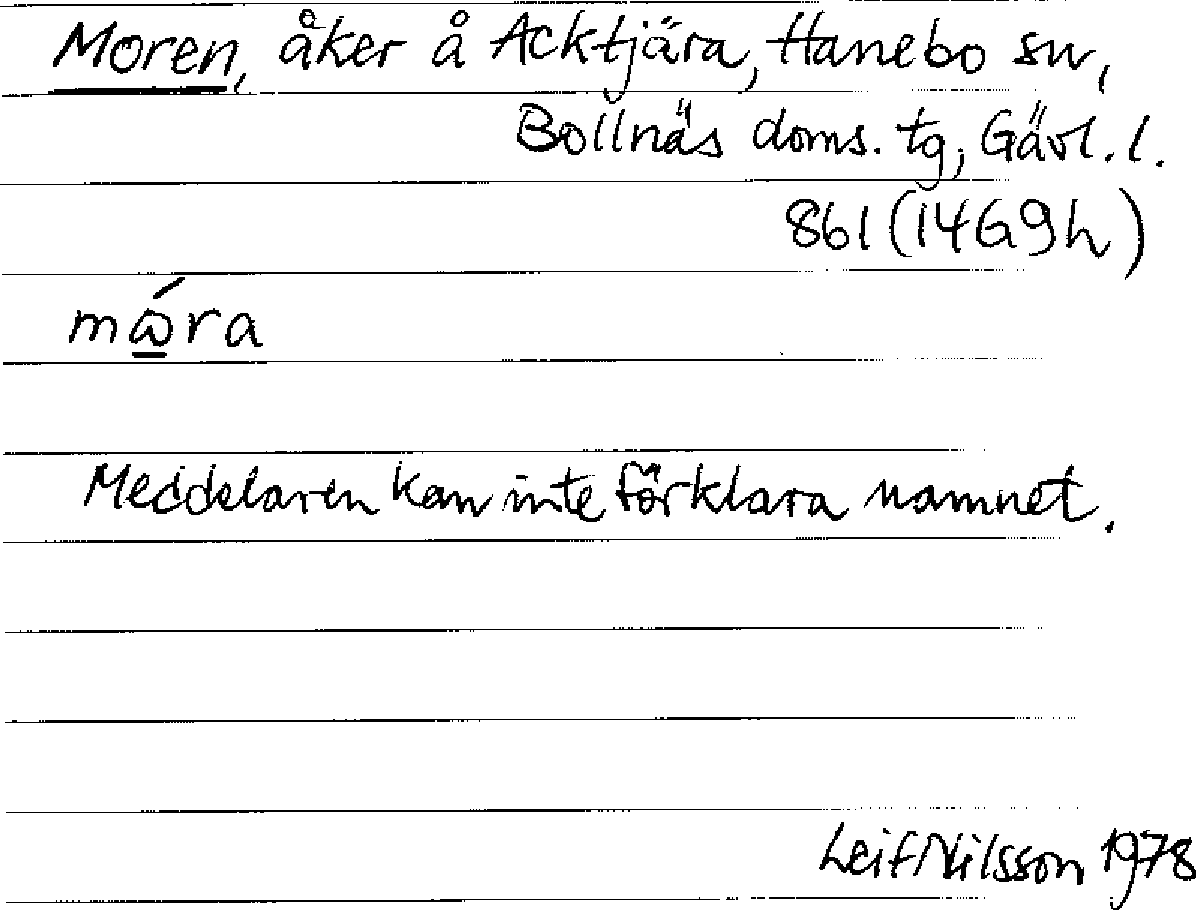 Moren, åker å Acktjära, Hanebo sn,
Bollnäs doms. tg, Gävl. l.
861 (14G9h)
mώ̲ra
Meddelaren kan inte förklara namnet.
Leif Nilsson 1978